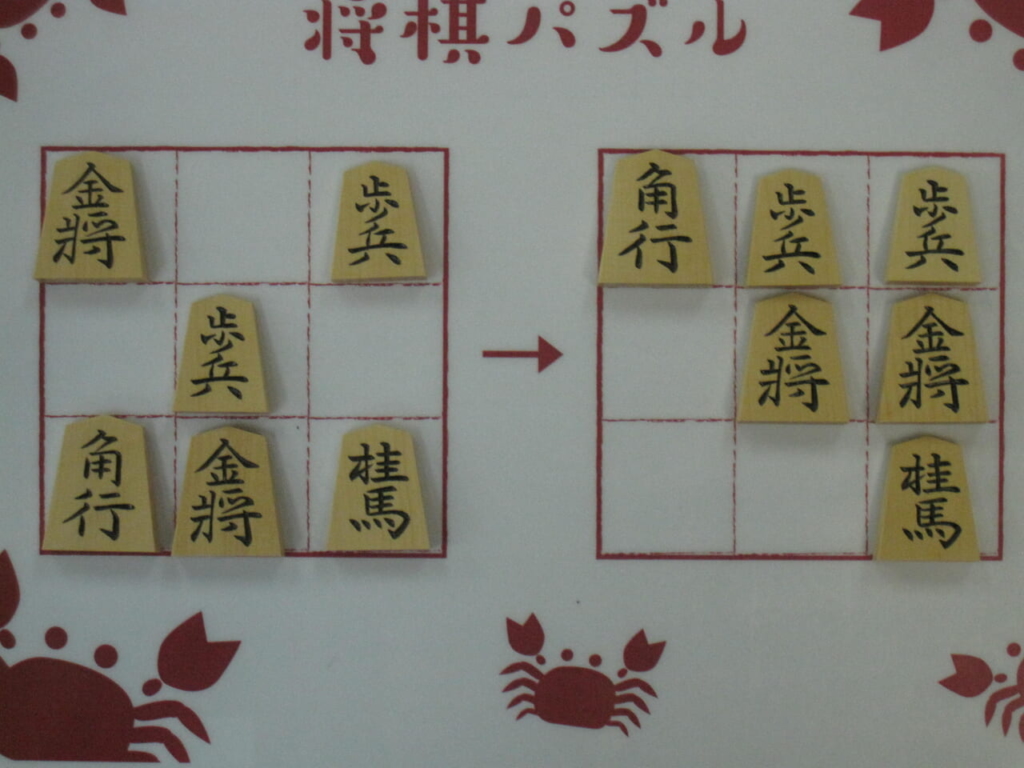 将棋パズル
金将
歩兵
歩兵
角行
金将
桂馬
角行
歩兵
歩兵
金将
金将
桂馬